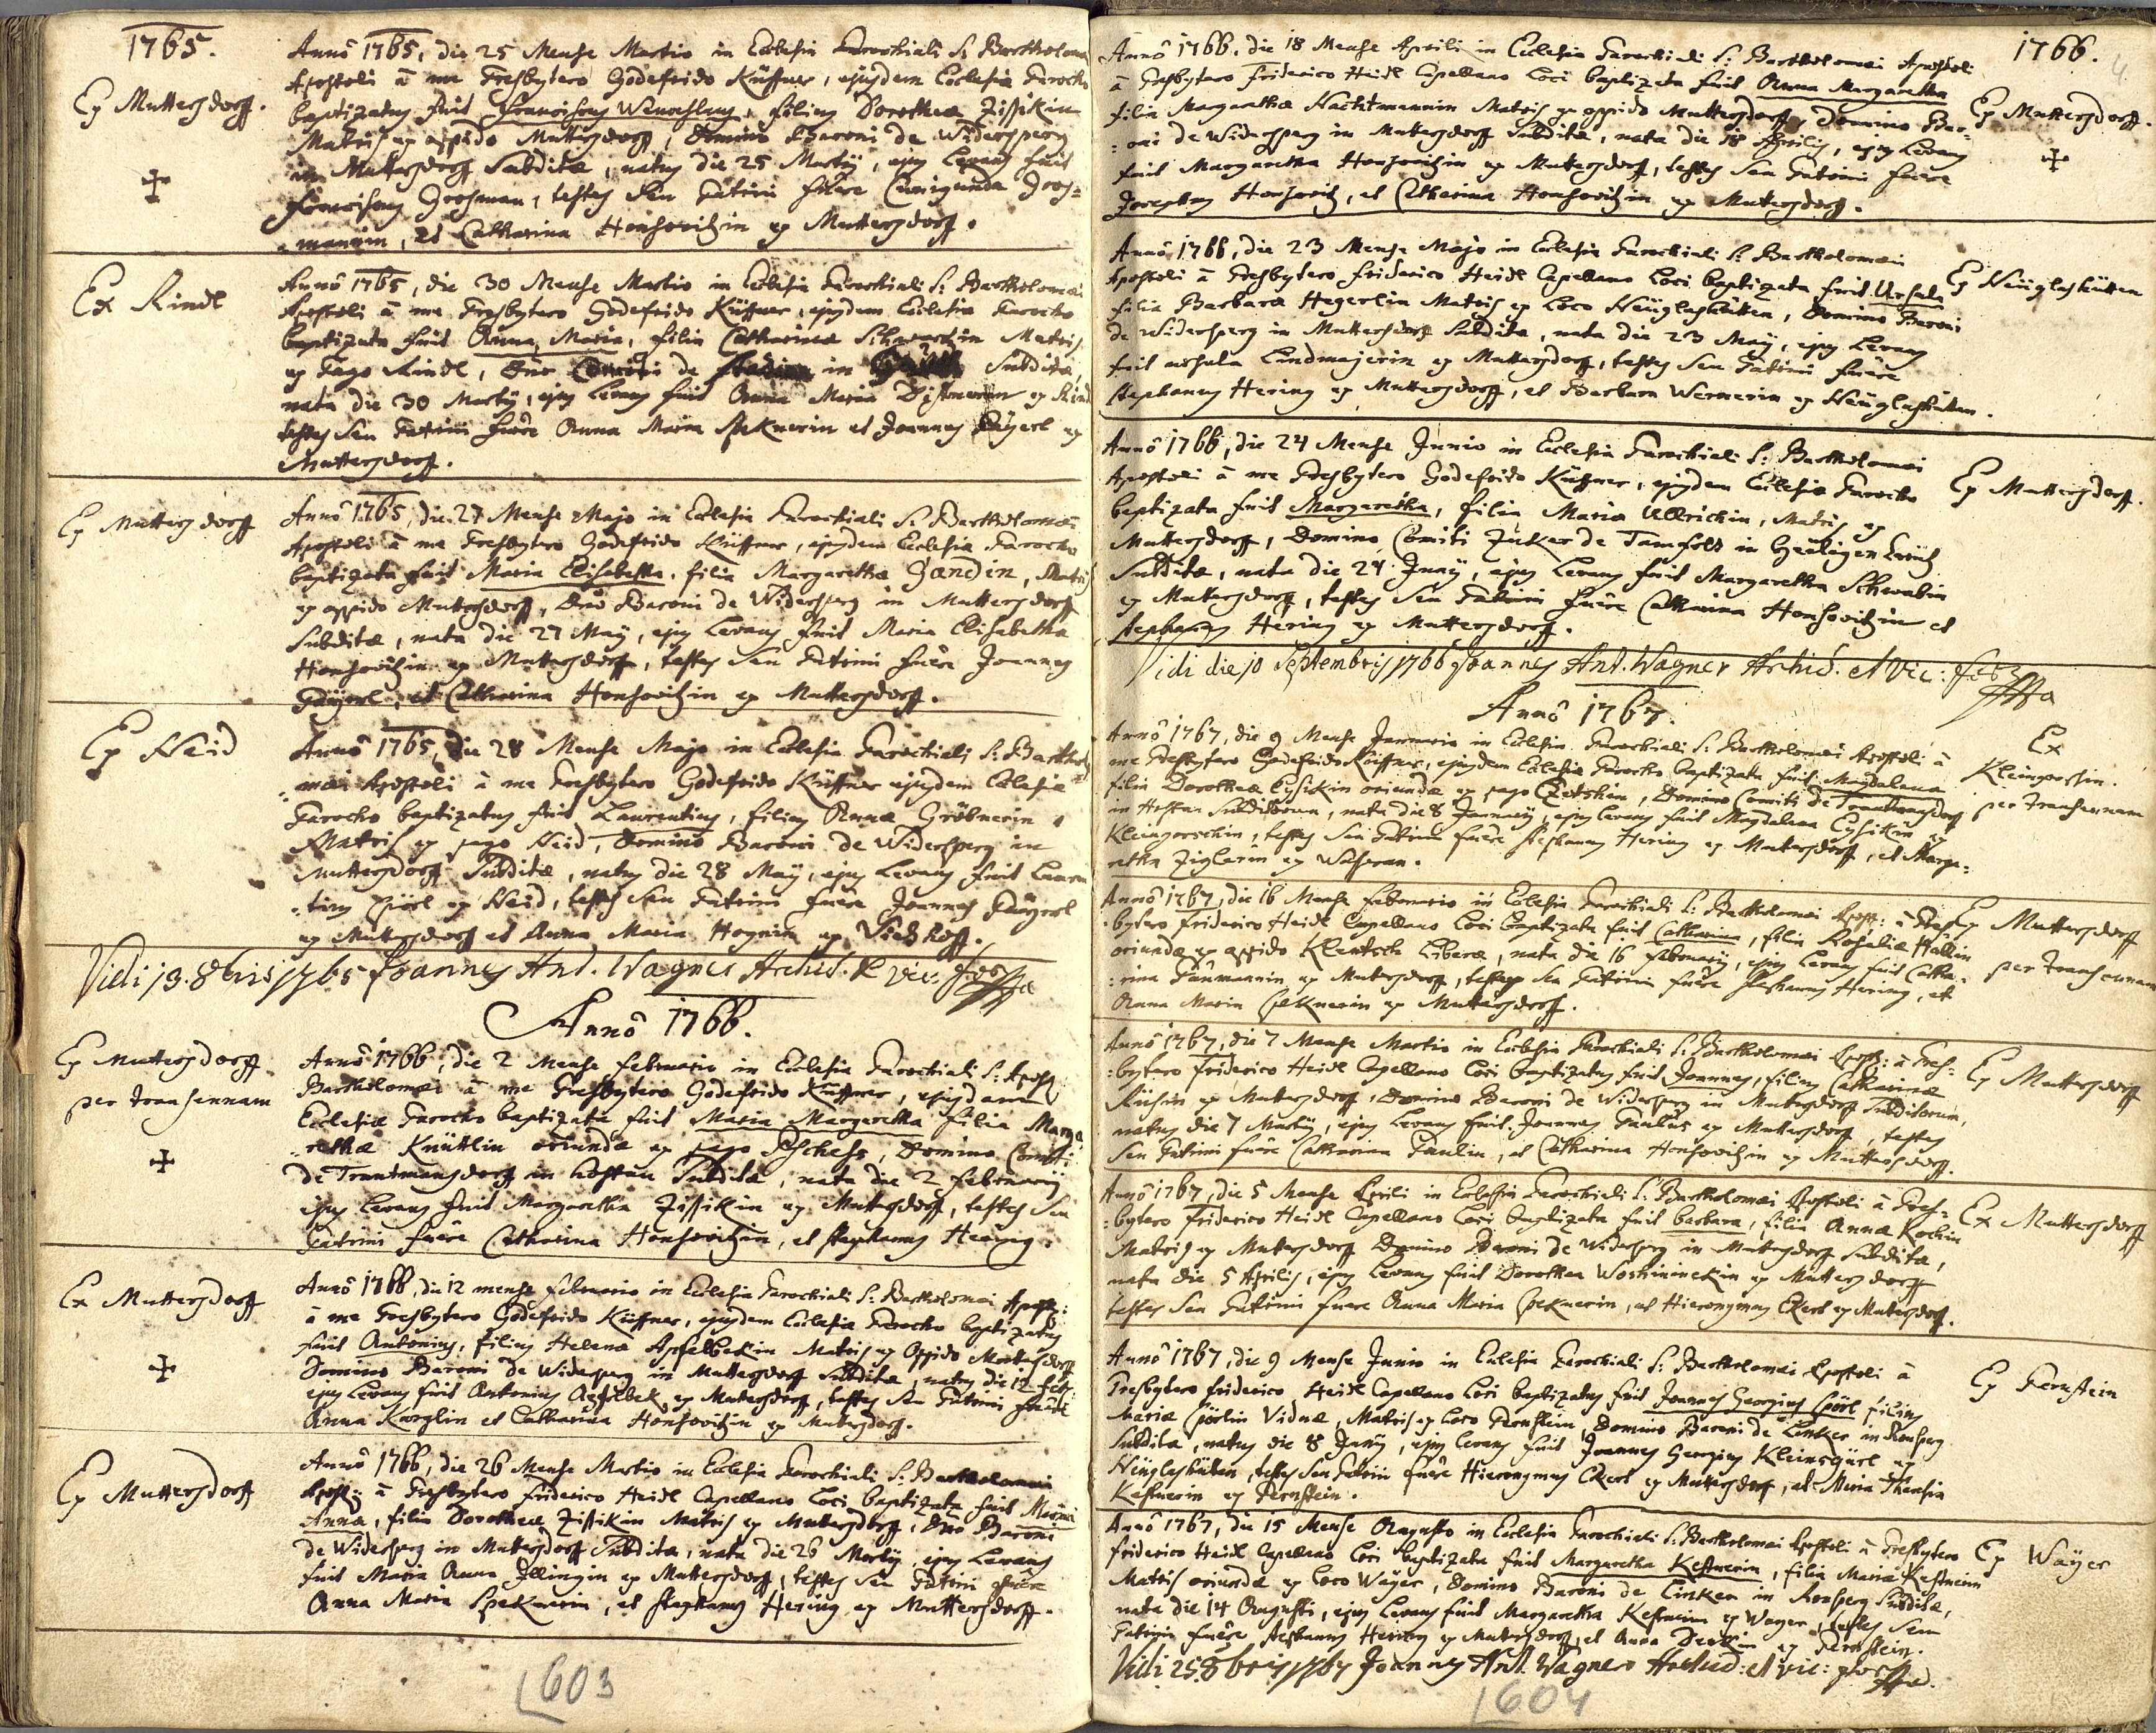 1765.
Ex Muttersdorff.
Anno 1765, die 25 Mense Martio in Ecclesia Parochiali S. Bartholomæi
Apostoli à me Presbytero Godefrido Küffner, ejusdem Ecclesiæ Parocho
baptizatus fuit Franciscus Wenceslaus, filius Dorotheæ Zissikin
Matris ex oppido Muttersdorff, Domino Baroni de Widersperg
in Muttersdorff Subditæ, natus die 25 Martij, ejus Levans fuit
Franciscus Grosman, testes seu Patrini fuêre Cunigunda Gros=
=mannin, et Catharina Honsovitzin ex Muttersdorf.
Ex Rindl
Anno 1765, die 30 Mense Martio in Ecclesia Parochiali S: Bartholomæi
Apostoli à me Presbytero Godefrido Küffner, ejusdem Ecclesiæ Parocho
baptizata fuit Anna Maria, filia Catharinæ Schwartzin Matris
ex Pago Rindl, Dno Comiti de Stadion in Subditæ,
nata die 30 Martij, ejus Levans fuit Anna Maria ex Rindl
testes seu Patrini fuêre Anna Maria Speknerin et Joannes Päyerl ex
Muttersdorff.
Ex Muttersdorff
Anno 1765, die 27 Mense Majo in Ecclesia Parochiali S. Bartholomæi
Apostoli à me Presbytero Godefrido Küffner, ejusdem Ecclesiæ Parocho
baptizata fuit Maria Elisabetha, filia Margarethæ Handin, Matris
ex oppido Muttersdorff, Dno Baroni de Widersperg in Muttersdorff
Subditæ, nata die 27 Maij, ejus Levans fuit Maria Elisabetha
Honsovitzin ex Muttersdorff, testes seu Patrini fuêre Joannes
Päyerl, et Catharina Honsovitzin ex Muttersdorff.
Ex Haid
Anno 1765, die 28 Mense Majo in Ecclesia Parochiali S: Bartholo
=mæi Apostoli à me Presbytero Godefrido Küffner ejusdem Ecclesiæ
Parocho baptizatus fuit Laurentius, filius Annæ Gröbnerin
Matris ex pago Haid, Domino Baroni de Widersperg in
Muttersdorff Subditæ, natus die 28 Maij, ejus Levans fuit Lauren
=tius ex Haid, testes seu Patrini fuêre Joannes Päyerl
ex Muttersdorff et Anna Maria Hognin ex
Vidi 13. 8bris 1765 Joannes Ant. Wagner Archid. et vic: for:
Anno 1766.
Ex Muttersdorff.
per transennam
Anno 1766, die 2 Mense februario in Ecclesia Parochiali S. Apost:
Bartholomæi à me Presbytero Godefrido Küffner, ejusdem
Ecclesiæ Parocho baptizata fuit Maria Margaretha filia Marga
=rethæ Knüttlin oriundæ ex pago Pschess, Domino Comiti
de Trautmansdorff in hostau Subditæ, nata die 2 februarij
ejus Levans fuit Margaretha Zissikin ex Muttersdorff, testes seu
Patrini fuêre Catharina Honsovitzin, et stephanus Hering.
Ex Muttersdorff
Anno 1766, die 12 mense februario in Ecclesia Parochiali S: Bartholomæi Apost:
à me Presbytero Godefrido Küffner, ejusdem Ecclesiæ Parocho baptizatus
fuit Antonius, filius Helenæ Apfelbekin Matris ex Oppido Muttersdorff
Domino Baroni de Widersperg in Muttersdorff Subditæ, natus die 12 feb:
ejus Levans fuit Antonius Apfelbek ex Muttersdorff, testes seu Patrini fuêre
Anna Karglin et Catharina Honsovitzin ex Muttersdorf.
Ex Muttersdorff
Anno 1766, die 26 Mense Martio in Ecclesia Parochiali S: Bartholomæi
Apost: à Presbytero friderico Heidl Capellano Loci baptizata fuit Maria
Anna, filia Dorotheæ Zissikin Matris ex Muttersdorff, Dno Baroni
de Widersperg in Muttersdorff Subditæ, nata die 26 Martij, ejus Levans
fuit Maria Anna Illingin ex Muttersdorff, testes seu Patrini fuêre
Anna Maria Speknerin, et stephanus Hering ex Muttersdorff.
603
1766.
4
Ex Muttersdorff.
Anno 1766, die 18 Mense Aprili in Ecclesia Parochiali S: Bartholomæi Apostoli
à Presbytero friderico Heidl Capellano Loci baptizata fuit Anna Margaretha
filia Margarethæ Hachtmannin Matris ex oppido Muttersdorff, Domino Ba=
=roni de Widersperg in Muttersdorff Subditæ, nata die 18 Aprilis, ejus Levans
fuit Margaretha Honsovitzin ex Muttersdorff, testes seu Patrini fuêre
Josephus Honsovitz, et Catharina Honsovitzin ex Muttersdorff.
Ex Häuglashütten
Anno 1766, die 23 Mense Majo in Ecclesia Parochiali S: Bartholomæi
Apostoli à Presbytero friderico Heidl Capellano Loci baptizata fuit Ursula
filia Barbaræ Hegerlin Matris ex Loco Häuglashütten, Domino Baroni
de Widersperg in Muttersdorff Subditæ, nata die 23 Maij, ejus Levans
fuit ursula Lindmajerin ex Muttersdorff, testes seu Patrini fuêre
stephanus Hering ex Muttersdorff, et Barbara Wernerin ex Häuglashütten.
Ex Muttersdorff.
Anno 1766, die 24 Mense Junio in Ecclesia Parochiali S: Bartholomæi
Apostoli à me Presbytero Godefrido Küffner, ejusdem Ecclesiæ Parocho
baptizata fuit Margaretha, filia Mariæ Ullrichin, Matris ex
Muttersdorff, Domino Comiti Zuker de Tamfeld in Heiligen Creütz
Subditæ, nata die 24 Junij, ejus Levans fuit Margaretha Schwabin
ex Muttersdorff, testes seu Patrini fuêre Catharina Honsovitzin et
stephanus Hering ex Muttersdorff.
Vidi die 10 Septembris 1766 Joannes Ant. Wagner Archid. et Vic: for:
Anno 1767.
Ex
Kleingorschin.
per transennam
Anno 1767, die 9 Mense Januario in Ecclesia Parochiali S. Bartholomæi Apostoli à
me Presbytero Godefrido Küffner, ejusdem Ecclesiæ Parocho baptizata fuit Magdalena
filia Dorotheæ Cysikin oriundæ ex pago Czetschin, Domino Comiti de Trautmansdorff
in Hostau Subditorum, nata die 8 Januarij, ejus Levans fuit Magdalena Cysikin ex
Kleingorschin, testes seu Patrini fuêre stephanus Hering ex Muttersdorff, et Marga=
retha Ziglerin ex
Ex Muttersdorff
per transennam
Anno 1767, die 16 Mense februario in Ecclesia Parochiali S: Bartholomæi Apost: à Pres
=bytero friderico Heidl Capellano Loci baptizata fuit Catharina, filia Rosaliæ
oriundæ ex oppido Klentsch Liberæ, nata die 16 februarij, ejus Levans fuit Catha=
=rina ex Muttersdorff, testes seu Patrini fuêre stephanus Hering, et
Anna Maria Speknerin ex Muttersdorff.
Ex Muttersdorff
Anno 1767, die 7 Mense Martio in Ecclesia Parochiali S: Bartholomæi Apost: à Pres=
=bytero friderico Heidl Capellano Loci baptizatus fuit Joannes, filius Catharinæ
ex Muttersdorff, Domino Baroni de Widersperg in Muttersdorff Subditorum,
natus die 7 Martij, ejus Levans fuit Joannes Paulus ex Muttersdorff, testes
seu Patrini fuêre Catharina Paulin, et Catharina Honsovitzin ex Muttersdorff.
Ex Muttersdorff
Anno 1767, die 5 Mense Aprili in Ecclesia Parochiali S: Bartholomæi Apostoli à Pres=
=bytero friderico Heidl Capellano Loci baptizata fuit barbara, filia Annæ Kochin
Matris ex Muttersdorff Domino Baroni de Widersperg in Muttersdorff Subditæ,
nata die 5 Aprilis, ejus Levans fuit Dorothea Woshininekin ex Muttersdorff
testes seu Patrini fuêre Anna Maria Speknerin, et Hieronymus Ekert ex Muttersdorff.
Ex Pernstein
Anno 1767, die 9 Mense Junio in Ecclesia Parochiali S: Bartholomæi Apostoli à
Presbytero friderico Heidl Capellano Loci baptizatus fuit Joannes Georgius Spörl filius
Mariæ Spörlin Viduæ, Matris ex Loco Pernstein, Domino Baroni de Linker in Ronsperg
Subditæ, natus die 8 Junij, ejus levans fuit Joannes Georgius Kleinegürl ex
Häuglashütten, testes seu Patrini fuêre Hieronymus Ekert ex Muttersdorff, et Maria Theresia
Kestnerin ex Pernstein.
Ex Wäyer
Anno 1767, die 15 Mense Augusto in Ecclesia Parochiali S: Bartholomæi Apostoli à Presbytero
friderico Heidl Capellano Loci baptizata fuit Margaretha Kestnerin, filia Mariæ Kestnerin
Matris oriundæ ex Loco Wäyer, Domino Baroni de Linker in Ronsperg Subditæ,
nata die 14 Augusti, ejus Levans fuit Margaretha Kestnerin ex Wayer, testes seu
Patrini fuêre stephanus Hering ex Muttersdorff, et Anna ex Pernstein.
Vidi 25 8bris 1767 Joannes Ant. Wagner Archid: et vic: for:
604